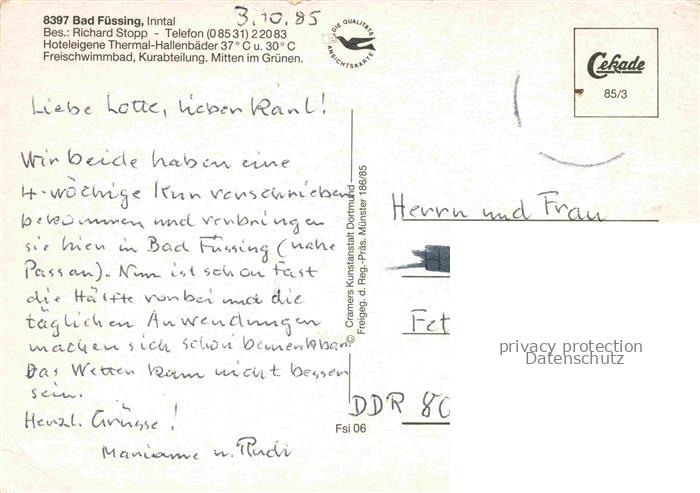 8397 Bad Füssing, Inntal
Bes.: Richard Stopp - Telefon (0 85 31) 2 20 83
Hoteleigene Thermal-Hallenbäder 37° C u. 30° C
Freischwimmbad, Kurabteilung. Mitten im Grünen.
3.10.85
DIE QUALITÄTS
ANSICHTSKARTE
Cekade
85/3
Liebe Lotte, lieber Karl!
Wir beide haben eine
4-wöchige Kur verschrieben
bekommen und verbringen
sie hier in Bad Füssing (nahe
Passau). Nun ist schon fast
die Hälfte vorbei und die
täglichen Anwendungen
machen sich schon bemerkbar.
Das Wetter kann nicht besser
sein.
Herzl. Grüsse!
Marianne u. Rudi
© Cramers Kunstanstalt Dortmund
Freigeg. d. Reg.-Präs. Münster 186/85
Fsi 06
Herrn und Frau
Fet
DDR 80
privacy protection
Datenschutz